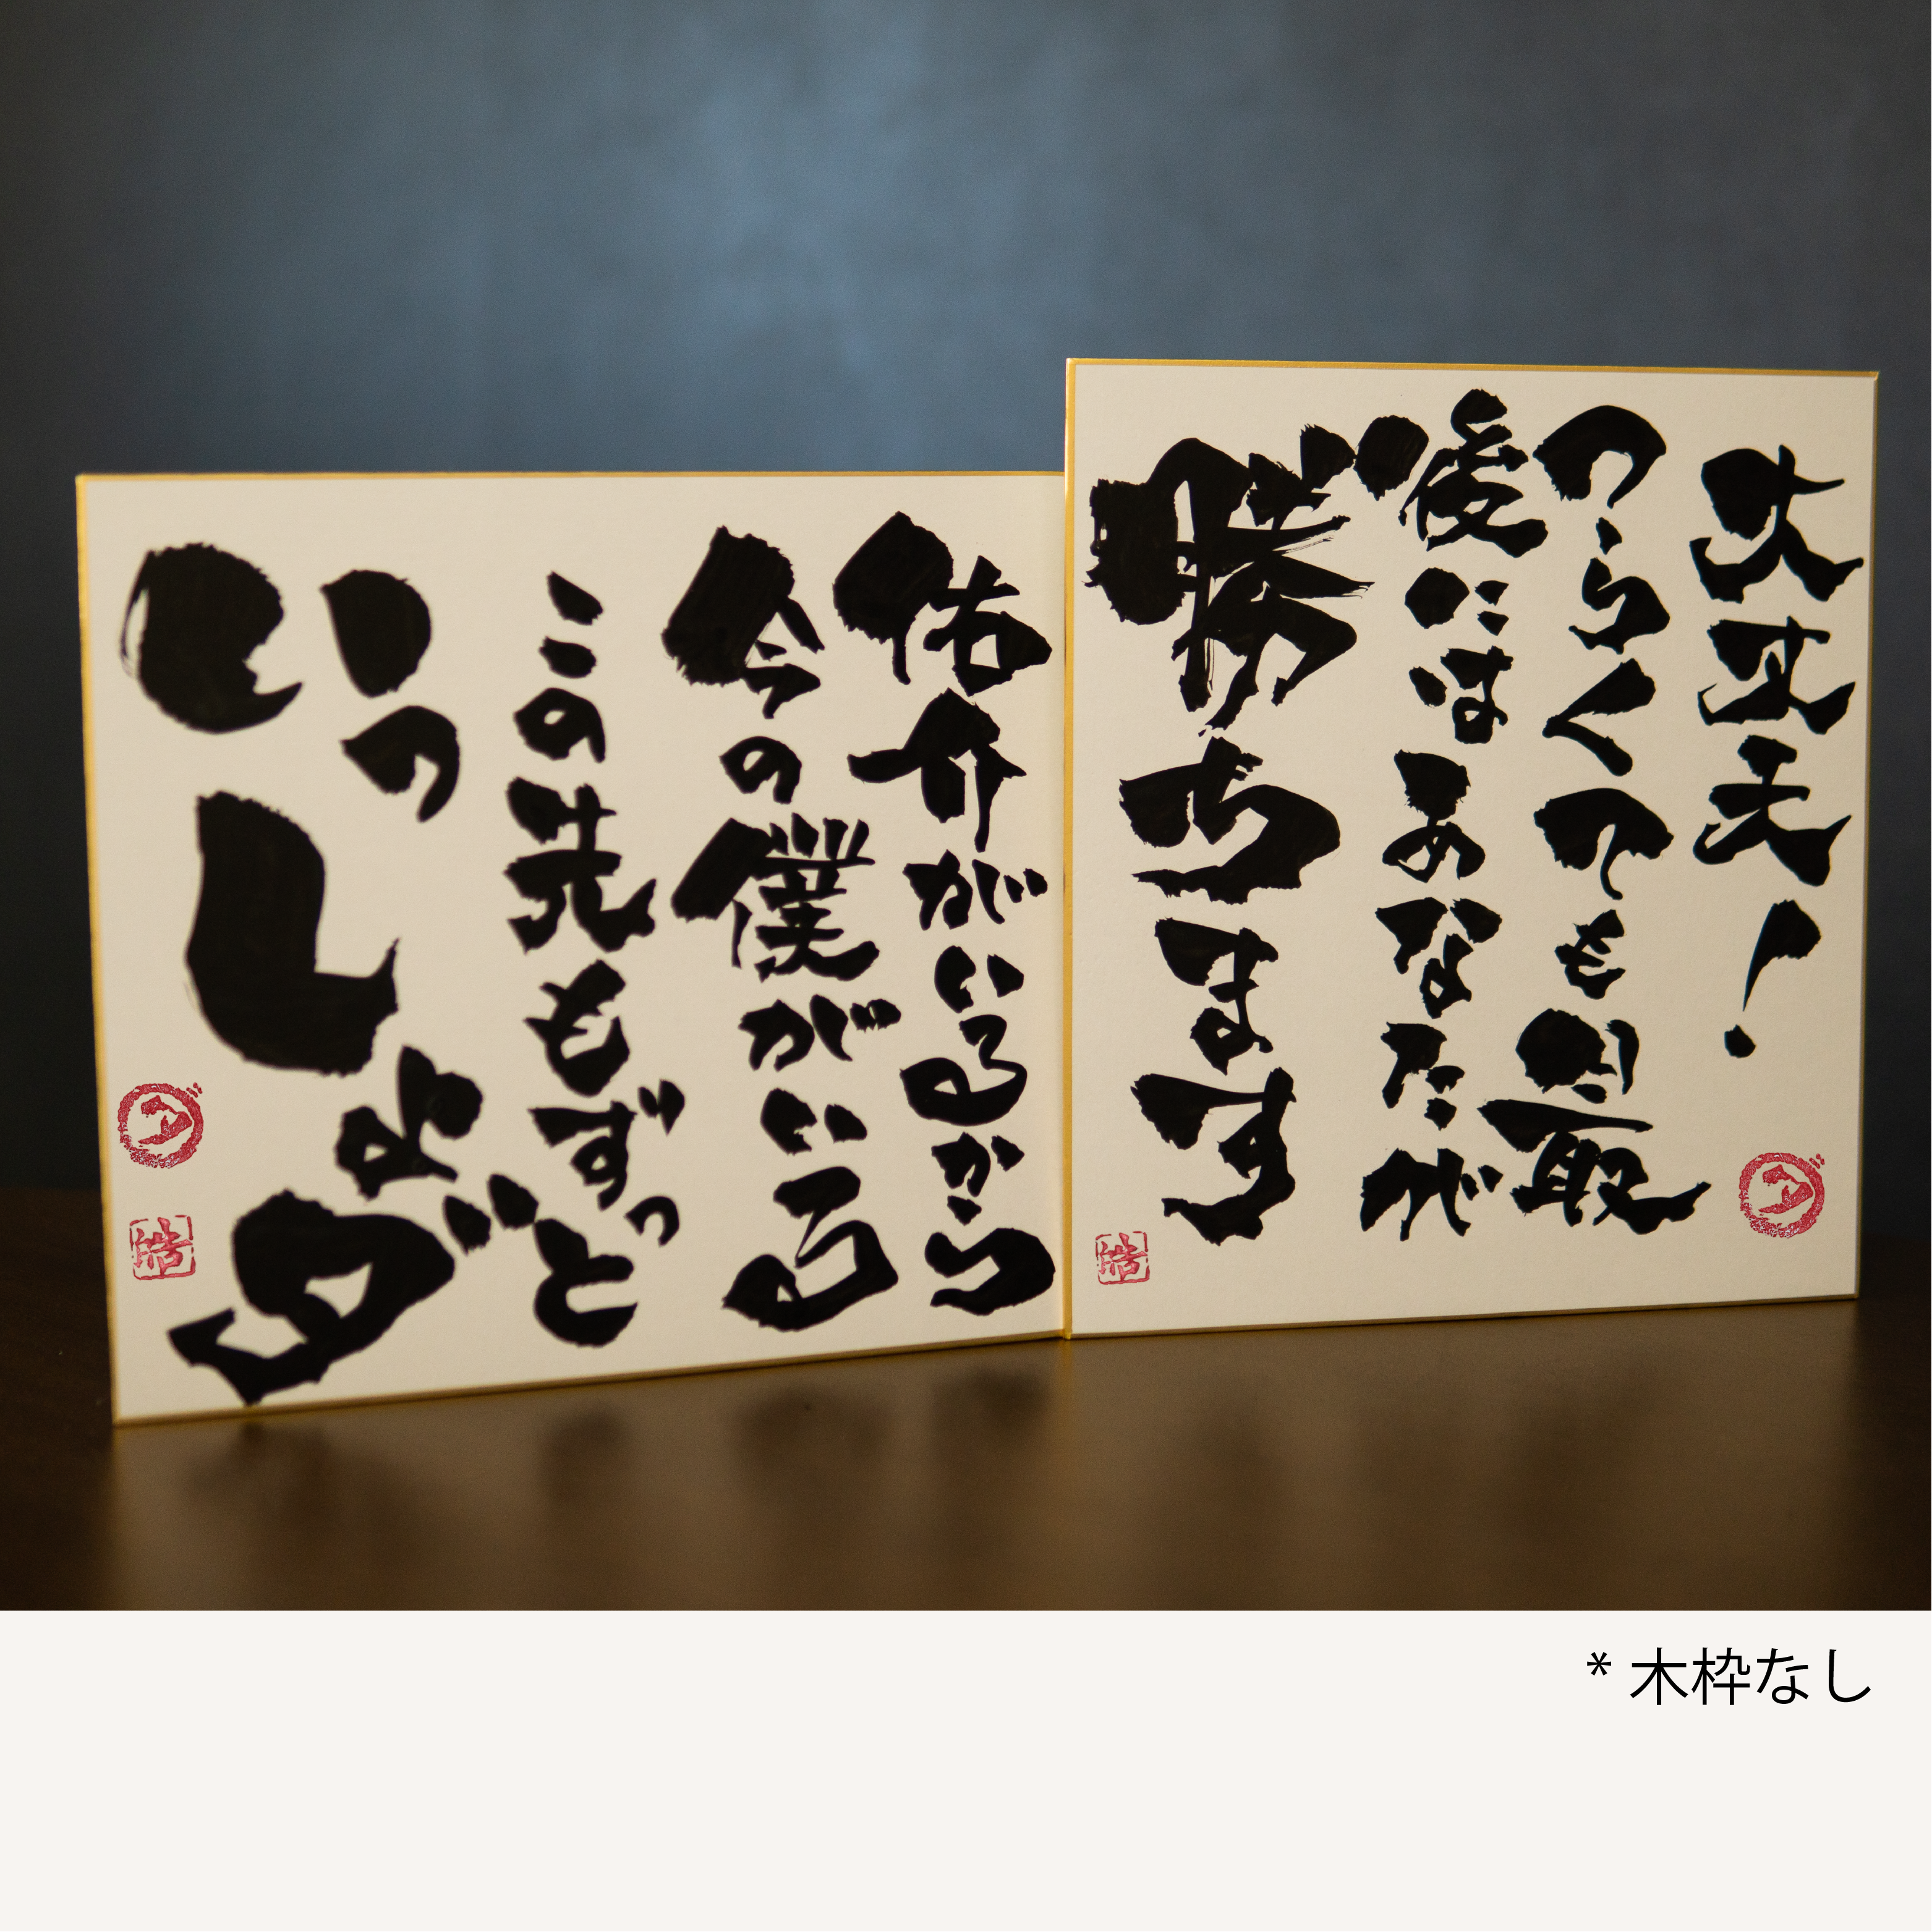 大丈夫!
つらくても最
後にはあなたが
勝ちます
浩
佑介がいるから
今の僕がいる
この先もずっと
いっしょダ
浩
* 木枠なし